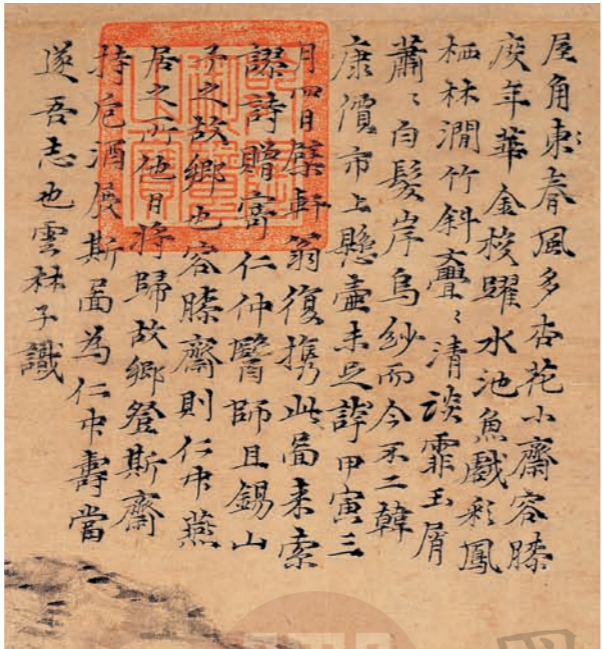 屋角東春風多杏花小齋容膝
度年華金梭躍水池魚戲彩鳳
栖林澗竹斜亹〻清談霏玉屑
蕭〻白髮岸烏紗而今不二韓
康價市上懸壺未足誇甲寅三
月四日檗軒翁復攜此啚来索
謬詩贈寄仁仲醫師且錫山
予之故鄉也容膝齋則仁中燕
居之所他日將歸故鄉登斯齋
持卮酒展斯啚為仁中壽當
遂吾志也雲林子識